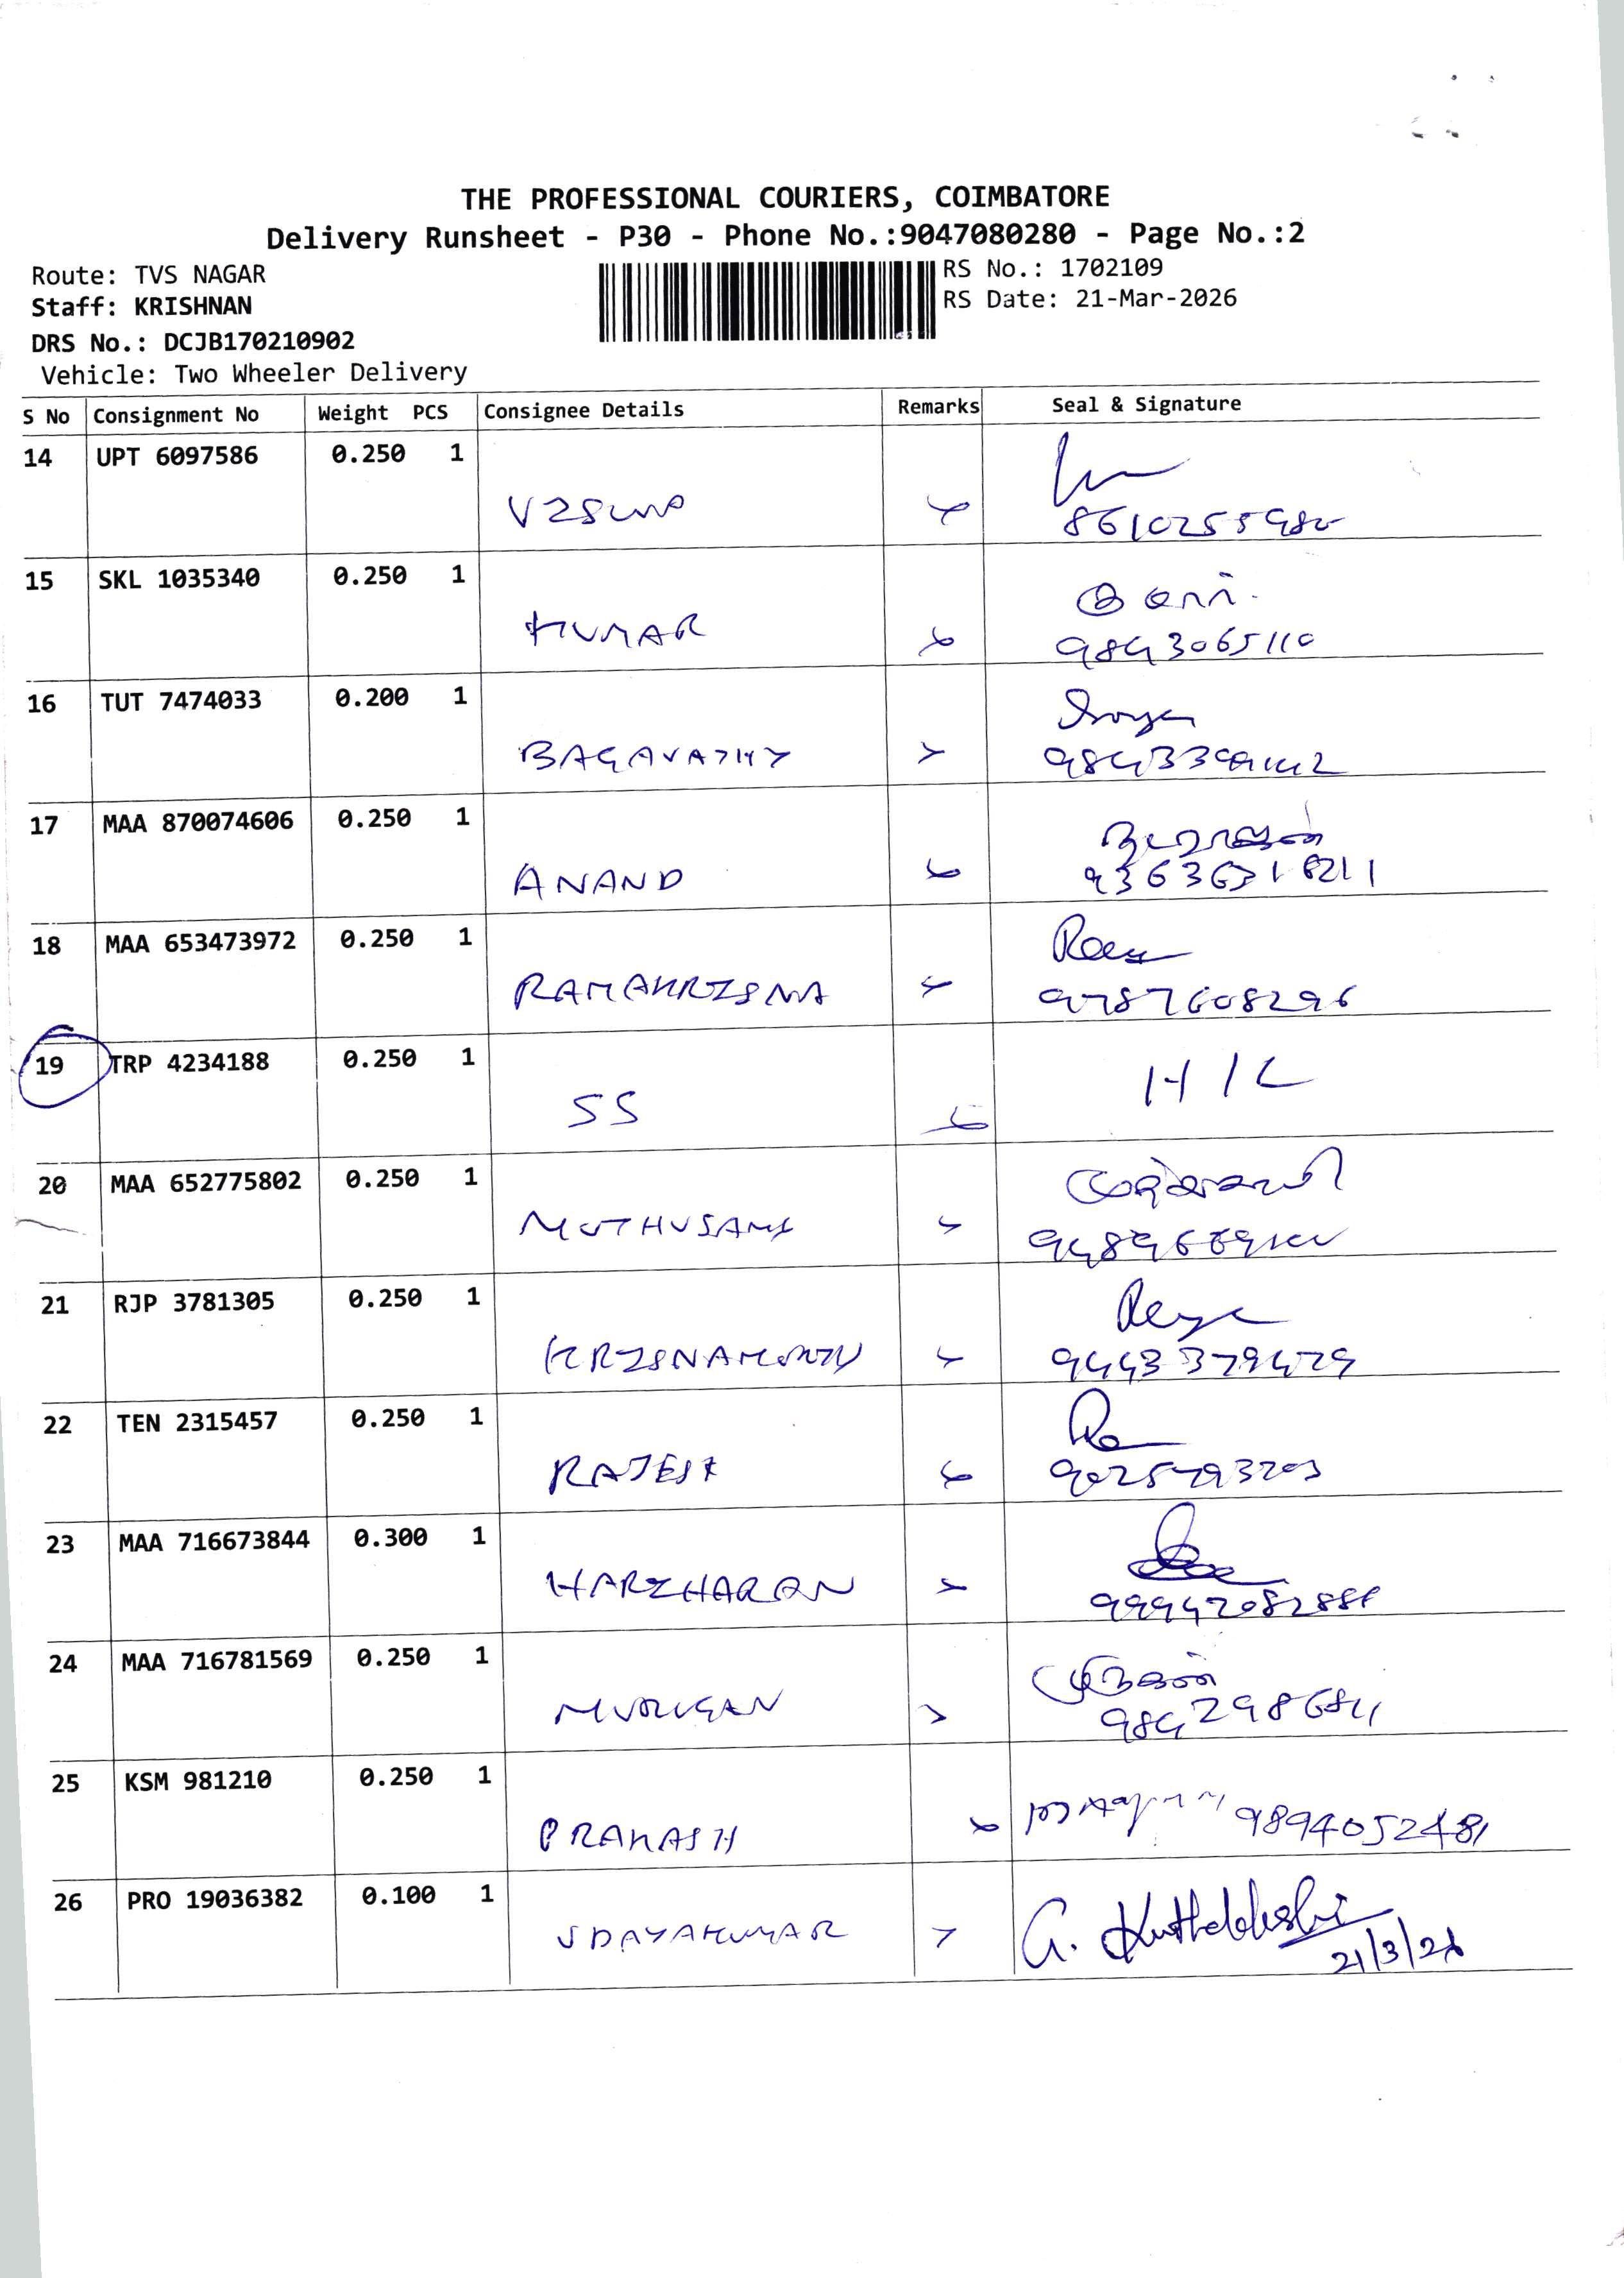 THE PROFESSIONAL COURIERS, COIMBATORE
Delivery Runsheet - P30 - Phone No.:9047080280 - Page No.:2
Route: TVS NAGAR
RS No.: 1702109
Staff: KRISHNAN
RS Date: 21-Mar-2026
DRS No.: DCJB170210902
Vehicle: Two Wheeler Delivery
S No Consignment No Weight PCS Consignee Details Remarks Seal & Signature
14 UPT 6097586 0.250 1
15 SKL 1035340 0.250 1
KUMAR
9843065110
16 TUT 7474033 0.200 1
BAGAVATHY
17 MAA 870074606 0.250 1
ANAND
18 MAA 653473972 0.250 1
RAMAKRISNA
9787608296
19 TRP 4234188 0.250 1
SS H/L
20 MAA 652775802 0.250 1
MUTHUSAMY
21 RJP 3781305 0.250 1
9443379479
22 TEN 2315457 0.250 1
RAJESH
23 MAA 716673844 0.300 1
HARIHARAN
24 MAA 716781569 0.250 1
முருகன்
MURUGAN
25 KSM 981210 0.250 1
PRAKASH 9894052481
26 PRO 19036382 0.100 1
UDAYAKUMAR
21/3/26